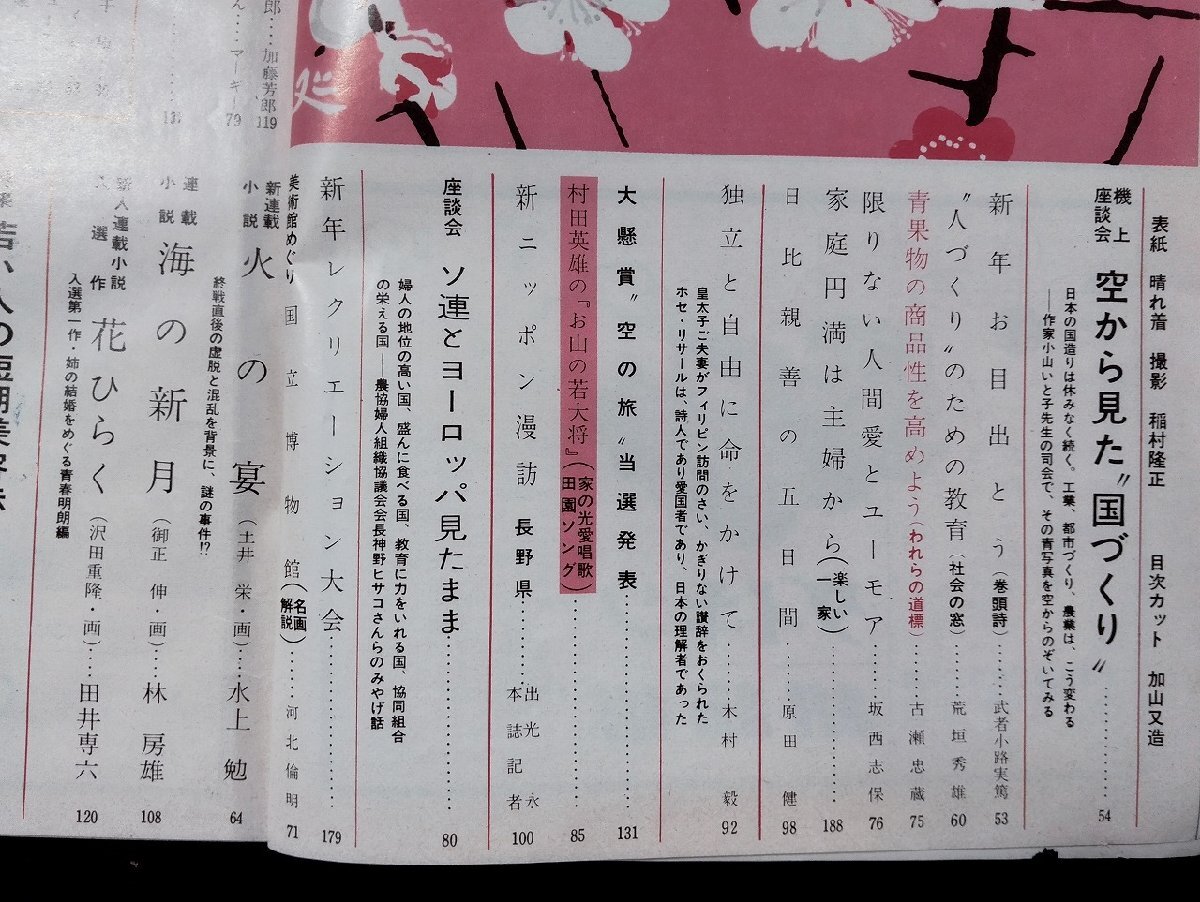 表紙 晴れ着 撮影 稲村隆正 目次カット 加山又造
機上座談会 空から見た〝国づくり〟…………54
日本の国造りは休みなく続く。工業、都市づくり、農業は、こう変わる
――作家小山いと子先生の司会で、その青写真を空からのぞいてみる
新年お目出とう(巻頭詩)……武者小路実篤 53
〝人づくり〟のための教育(社会の窓)……荒垣秀雄 60
青果物の商品性を高めよう(われらの道標)……古瀬忠蔵 75
限りない人間愛とユーモア……坂西志保 76
家庭円満は主婦から(楽しい一家)…………188
日比親善の五日間……原田健 98
独立と自由に命をかけて……木村毅 92
皇太子ご夫妻がフィリピン訪問のさい、かぎりない讃辞をおくられた
ホセ・リサールは、詩人であり愛国者であり、日本の理解者であった
大懸賞〝空の旅〟当選発表…………131
村田英雄の『お山の若大将』(家の光愛唱歌 田園ソング)…………85
新ニッポン漫訪 長野県……出光永 本誌記者 100
座談会 ソ連とヨーロッパ見たまま…………80
婦人の地位の高い国、盛んに食べる国、教育に力をいれる国、協同組合
の栄える国――農協婦人組織協議会会長神野ヒサコさんらのみやげ話
新年レクリエーション大会…………179
美術館めぐり 国立博物館(名画解説)……河北倫明 71
新連載小説 火の宴(土井栄・画)……水上勉 64
終戦直後の虚脱と混乱を背景に、謎の事件!?
連載小説 海の新月(御正伸・画)……林房雄 108
新人連載小説入選作 花ひらく(沢田重隆・画)……田井専六 120
入選第一作・姉の結婚をめぐる青春明朗編
若い人の短期美容法
郎……加藤芳郎 119
ん……マーギー 79